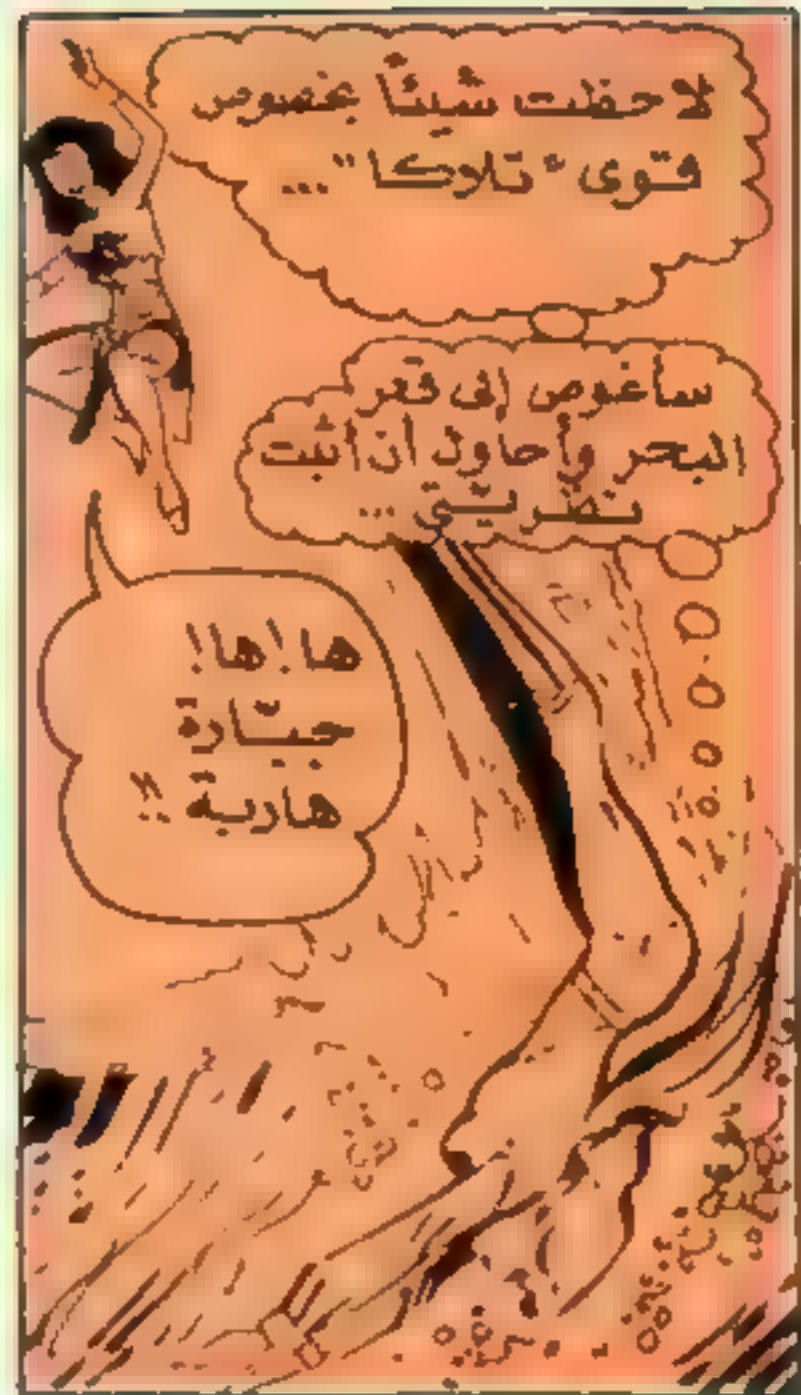 لاحظت شيئاً بخصوص
قوى "تلاكا"...
سأغوص إلى قعر
البحر وأحاول أن أثبت
نظريتي ...
ها!ها!
جبّارة
هاربة !!